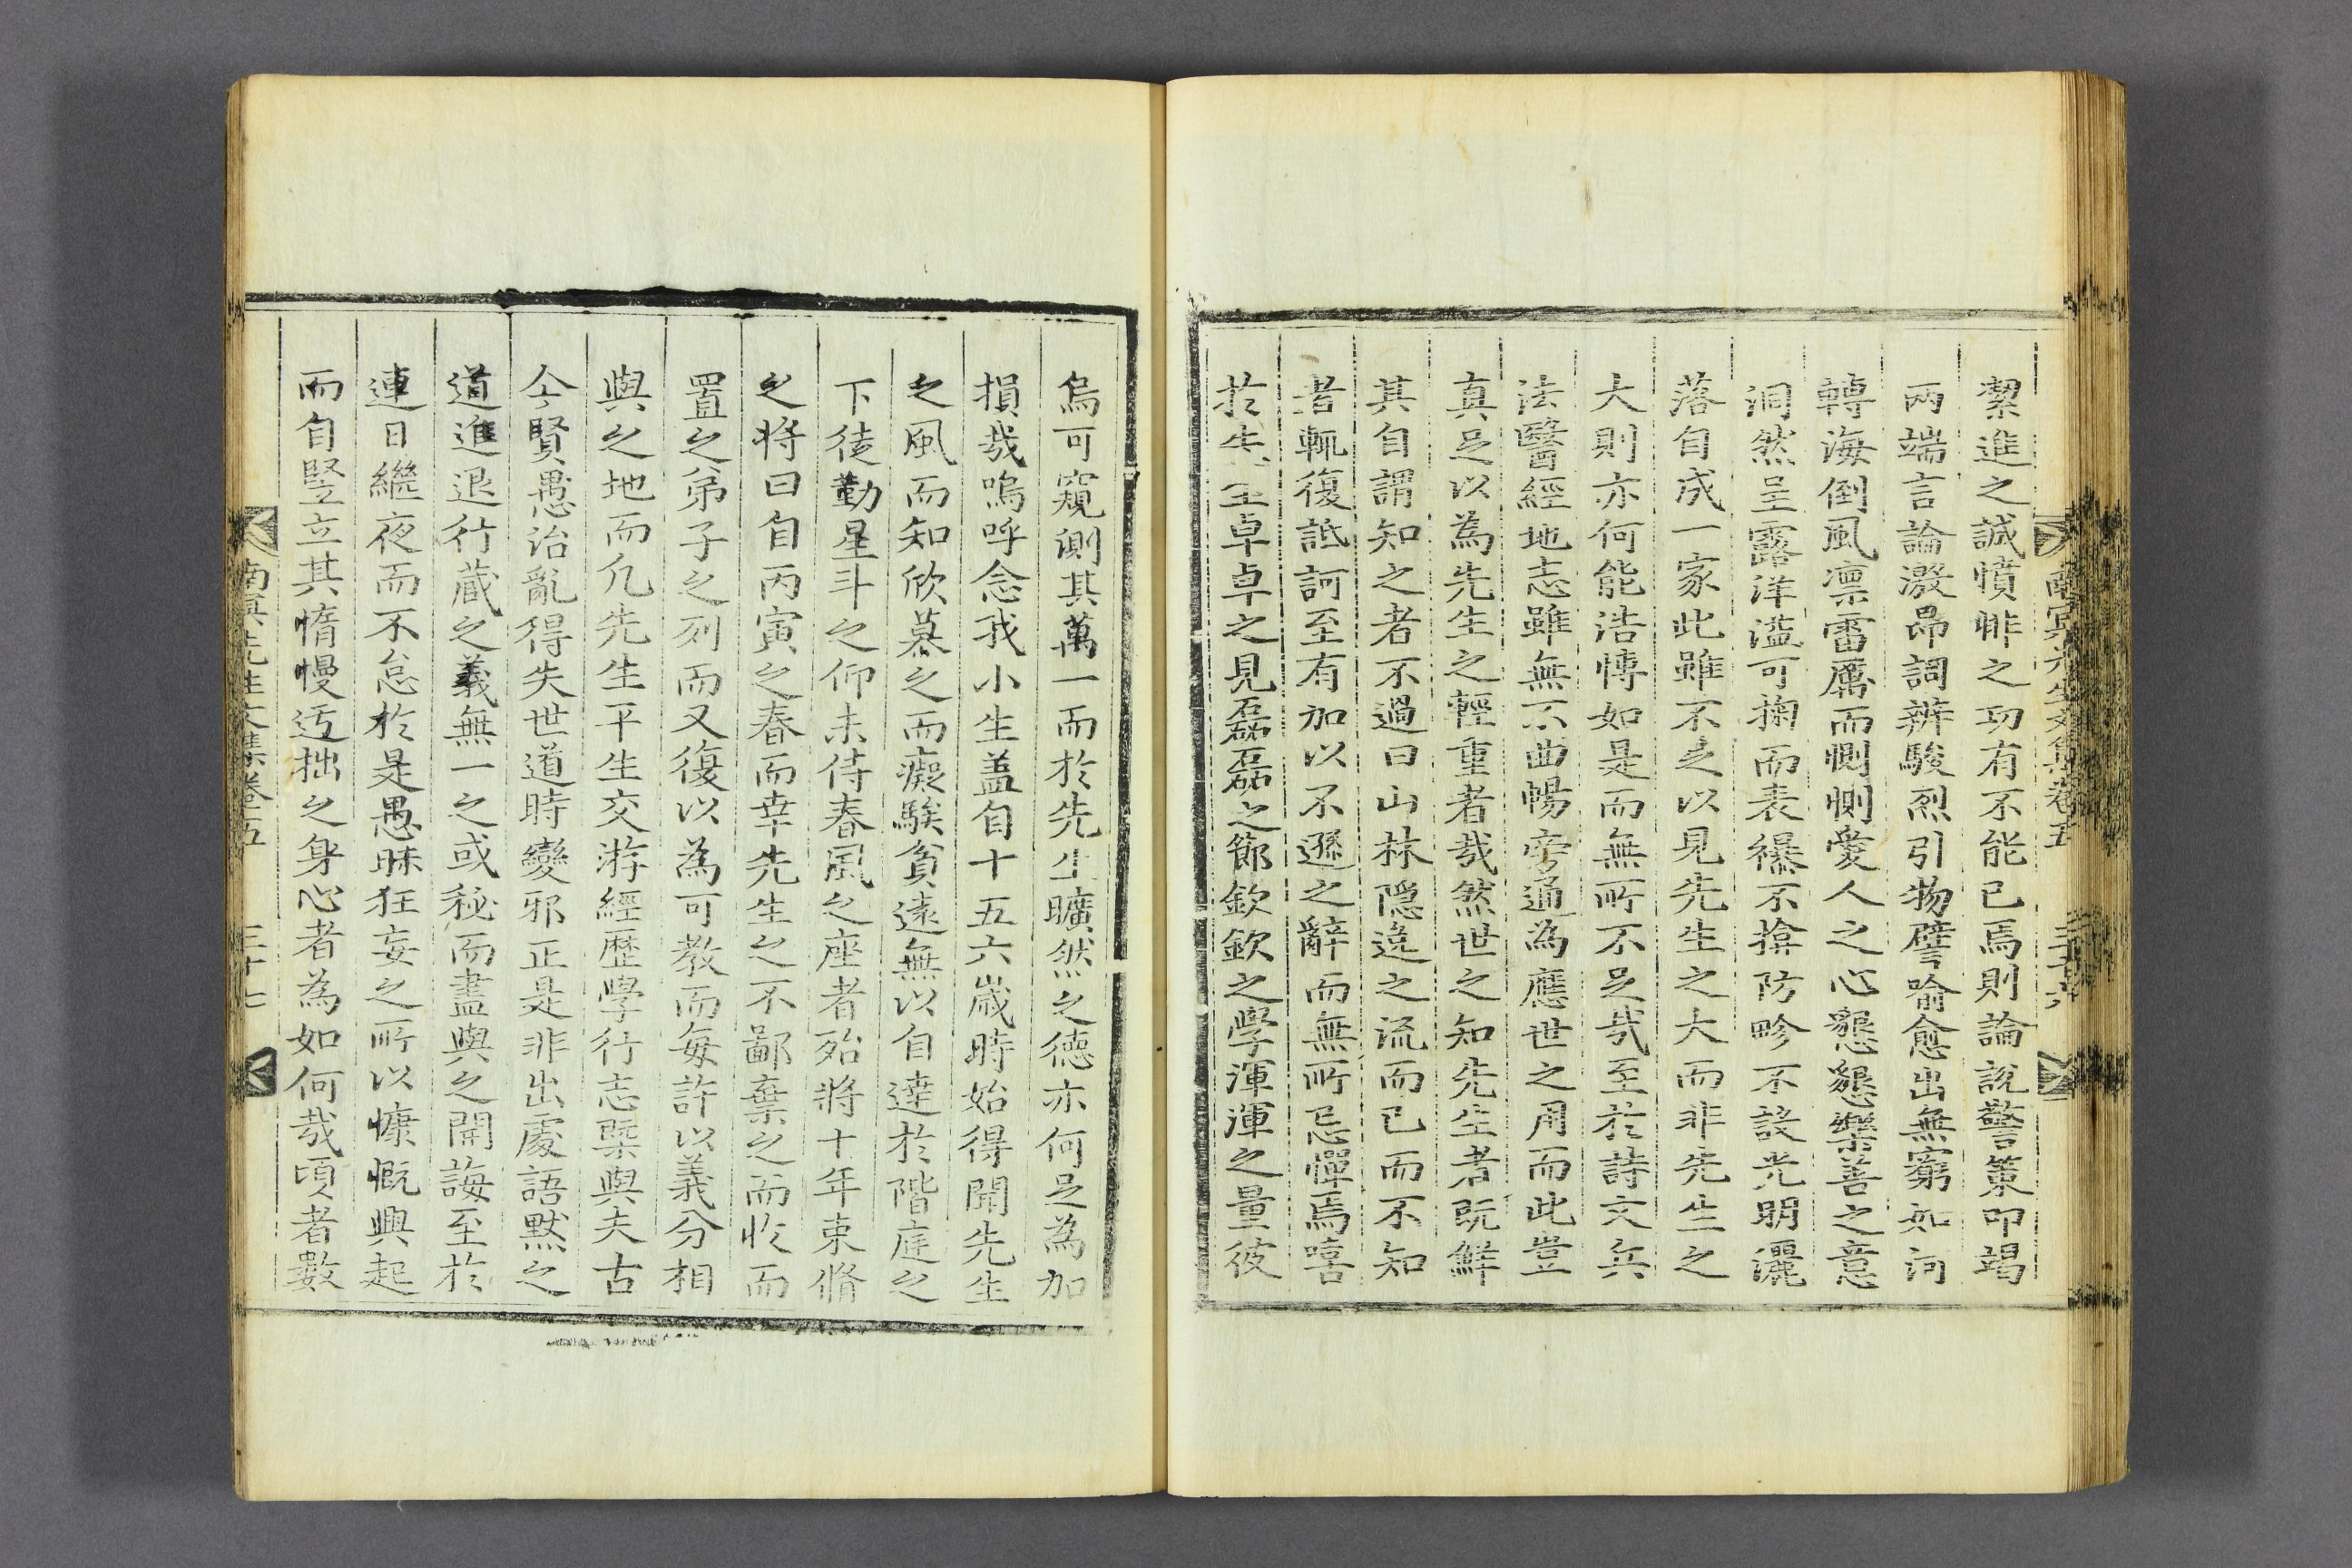 南冥先生文集卷五　三十六
潔進之誠憤悱之功有不能已焉則論說警策叩竭
兩端言論激昂詞辨駿烈引物譬喻愈出無窮如河
轉海倒風凛雷厲而惻惻愛人之心懇懇樂善之意
洞然呈露洋溢可掬而表襮不揜防畛不設光明灑
落自成一家此雖不足以見先生之大而非先生之
大則亦何能浩慱如是而無所不足哉至於詩文兵
法醫經地志雖無不曲暢旁通為應世之用而此豈
真足以為先生之輕重者哉然世之知先生者旣鮮
其自謂知之者不過曰山林隱逸之流而已而不知
者輒復詆訶至有加以不遜之辭而無所忌憚焉嘻
於先生卓卓之見磊磊之節欽欽之學渾渾之量彼
烏可窺測其萬一而於先生曠然之德亦何足為加
損哉嗚呼念我小生盖自十五六歲時始得聞先生
之風而知欣慕之而癡騃貧遠無以自達於階庭之
下徒勤星斗之仰未侍春風之座者殆將十年束脩
之將曰自丙寅之春而幸先生之不鄙棄之而收而
置之弟子之列而又復以為可教而每許以義分相
與之地而凡先生平生交游經歷學行志槩與夫古
今賢愚治亂得失世道時變邪正是非出處語默之
道進退行藏之義無一之或秘而盡與之開誨至於
連日繼夜而不怠於是愚昧狂妄之所以慷慨興起
而自竪立其惰慢迃拙之身心者為如何哉頃者數
南冥先生文集卷五　三十七